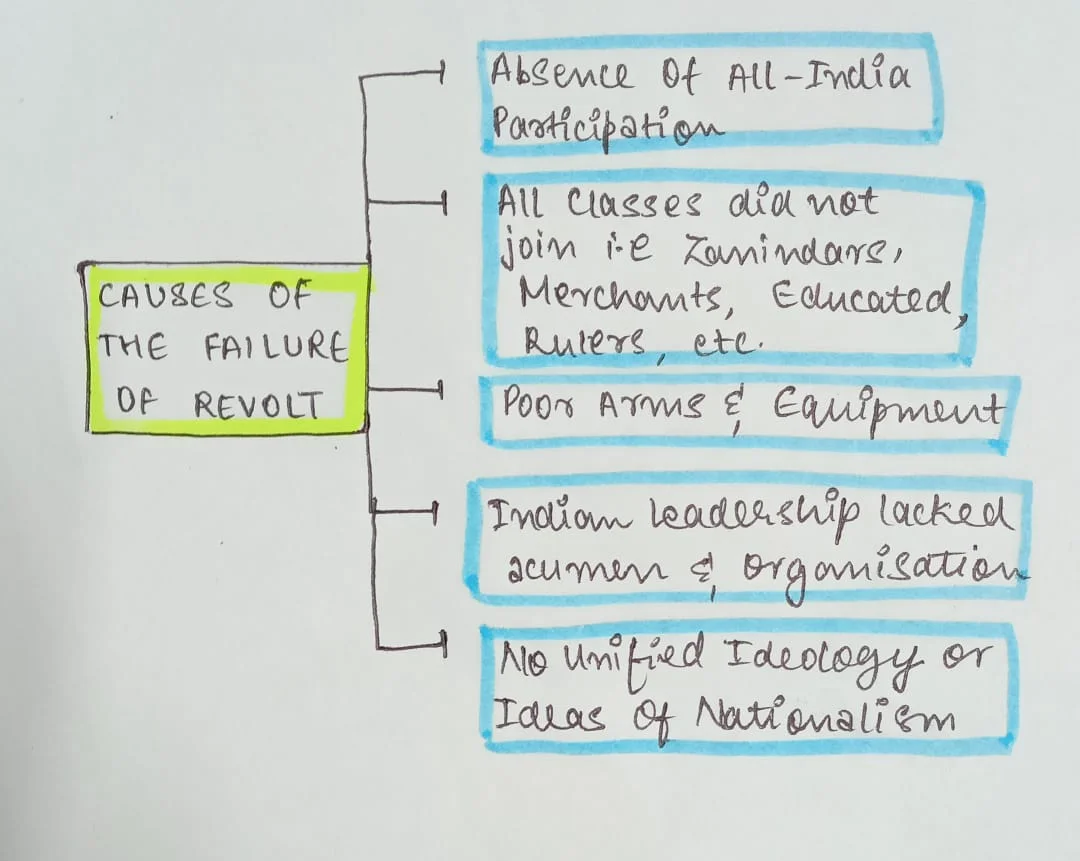 CAUSES OF
THE FAILURE
OF REVOLT
Absence of All-India
Participation
All Classes did not
join i.e Zamindars,
Merchants, Educated,
Rulers, etc.
Poor Arms & Equipment
Indian leadership lacked
acumen & Organisation
No Unified Ideology or
Ideas of Nationalism